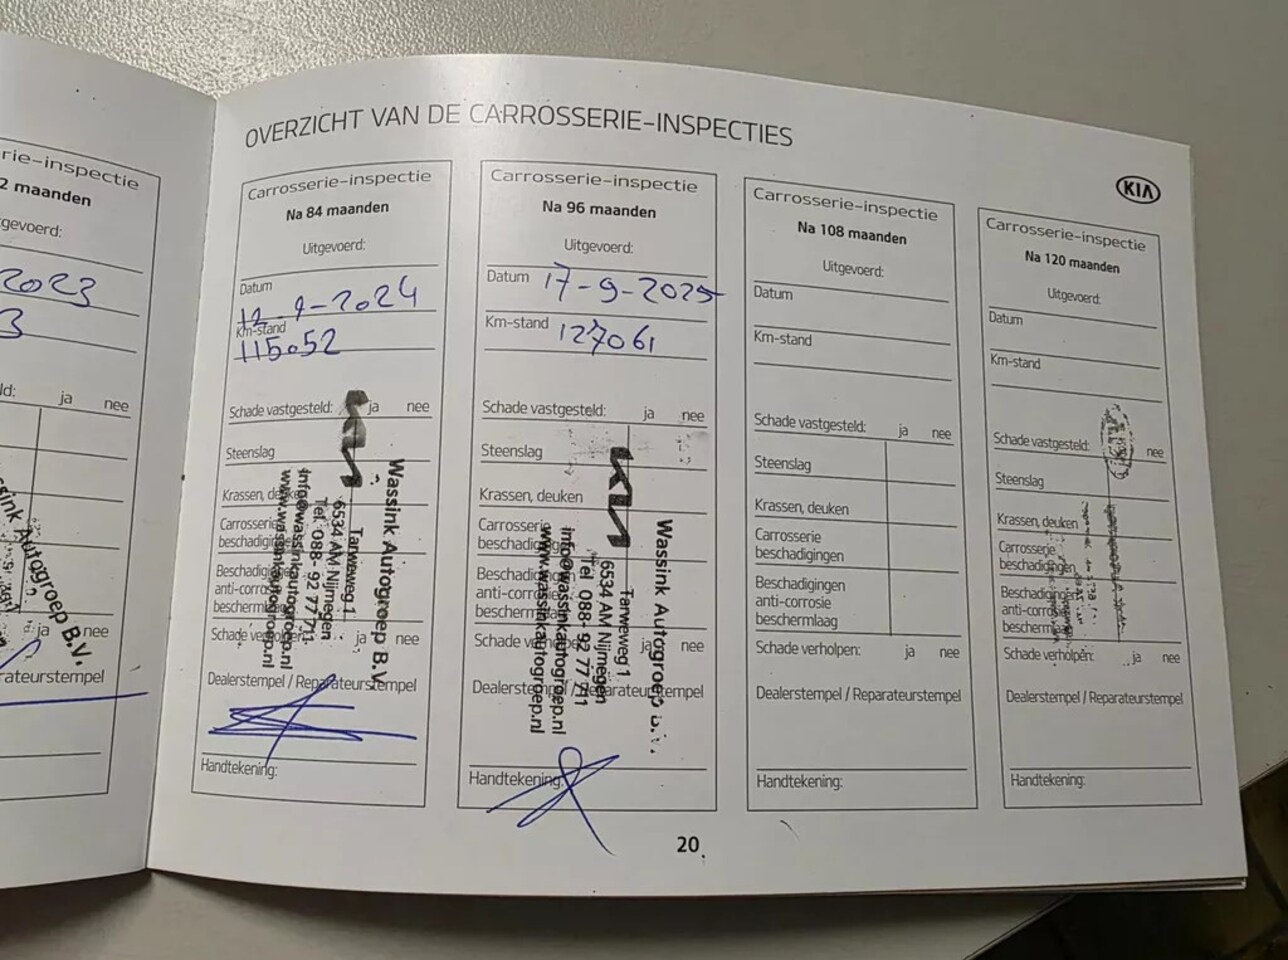 OVERZICHT VAN DE CARROSSERIE-INSPECTIES
KIA
rie-inspectie
2 maanden
tgevoerd:
2023
3
ld:
ja nee
Autogroep B.V.
ja nee
rateurstempel
Carrosserie-inspectie
Na 84 maanden
Uitgevoerd:
Datum
-2024
Km-stand
115052
Schade vastgesteld: ja nee
Steenslag
Krassen, deuken
Carrosserie
beschadigingen
Beschadigingen
anti-corrosie
beschermlaag
Schade verholpen: ja nee
Dealerstempel / Reparateurstempel
Handtekening:
KIA
Wassink Autogroep B.V.
Tarweweg 1
6534 AM Nijmegen
Tel. 088- 92 77 711
info@wassinkautogroep.nl
www.wassinkautogroep.nl
Carrosserie-inspectie
Na 96 maanden
Uitgevoerd:
Datum 17-9-2025
Km-stand 127061
Schade vastgesteld: ja nee
Steenslag
Krassen, deuken
Carrosserie
beschadigingen
Beschadigingen
anti-corrosie
beschermlaag
Schade verholpen: ja nee
Dealerstempel / Reparateurstempel
Handtekening:
KIA
Wassink Autogroep B.V.
Tarweweg 1
6534 AM Nijmegen
Tel 088- 92 77 711
info@wassinkautogroep.nl
www.wassinkautogroep.nl
Carrosserie-inspectie
Na 108 maanden
Uitgevoerd:
Datum
Km-stand
Schade vastgesteld: ja nee
Steenslag
Krassen, deuken
Carrosserie
beschadigingen
Beschadigingen
anti-corrosie
beschermlaag
Schade verholpen: ja nee
Dealerstempel / Reparateurstempel
Handtekening:
Carrosserie-inspectie
Na 120 maanden
Uitgevoerd:
Datum
Km-stand
Schade vastgesteld: nee
Steenslag
Krassen, deuken
Carrosserie
beschadigingen
Beschadigingen
anti-corrosie
beschermlaag
Schade verholpen: ja nee
Dealerstempel / Reparateurstempel
Handtekening:
20